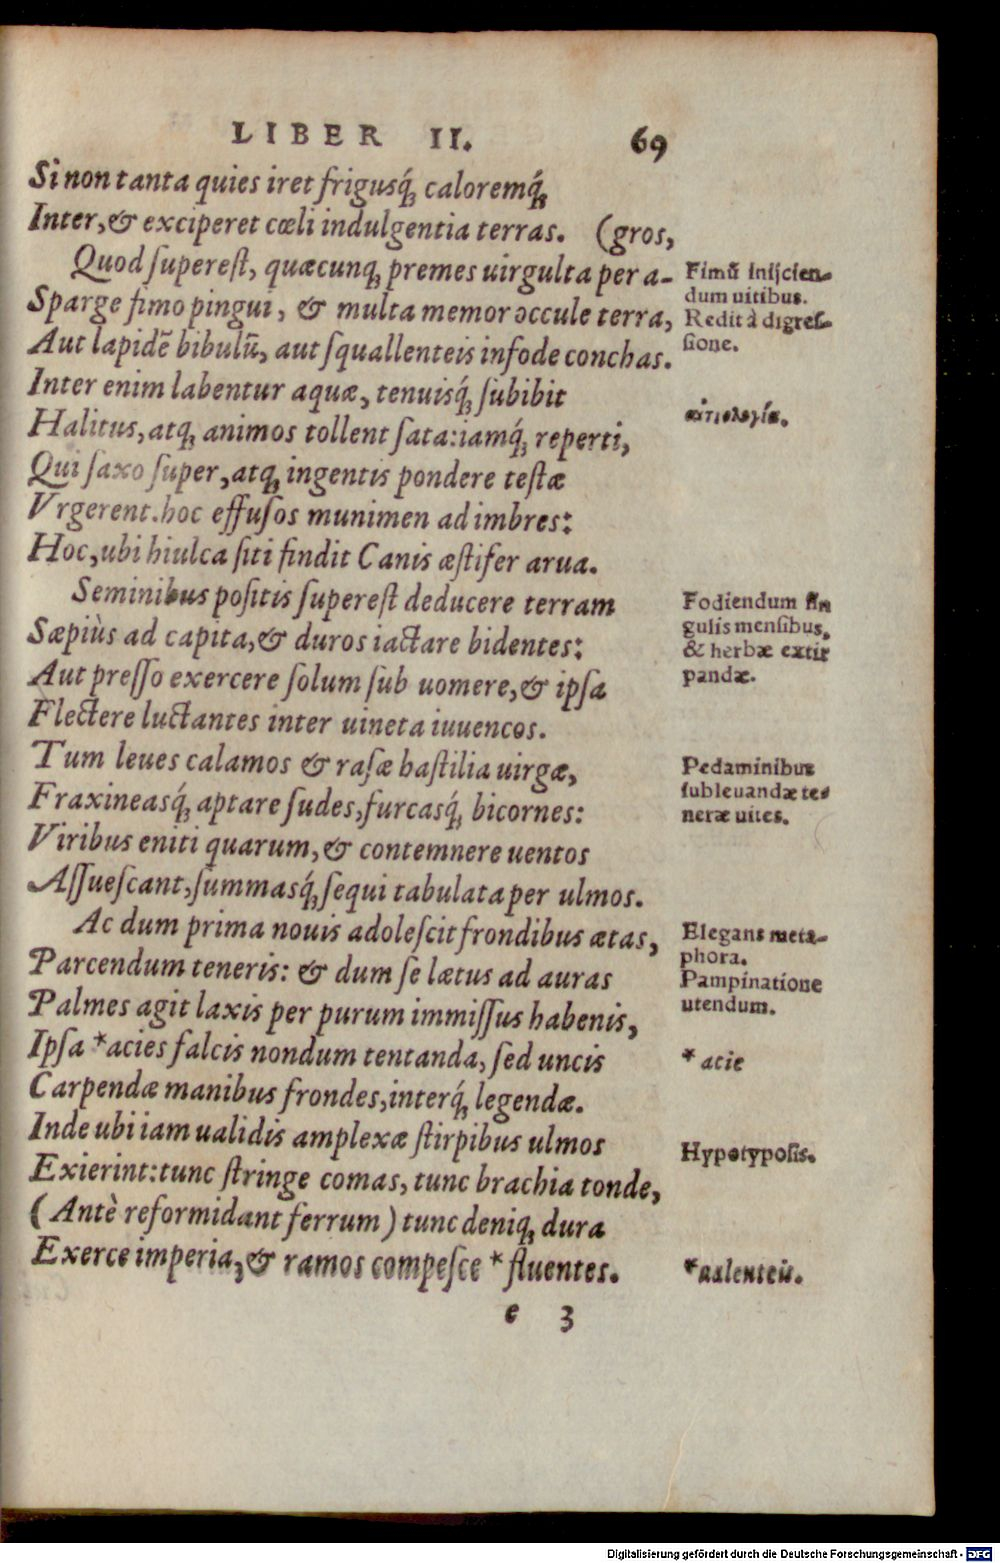 LIBER II. 69
Si non tanta quies iret frigusq́ꝫ caloremq́ꝫ
Inter, & exciperet cœli indulgentia terras. (gros,
Quod superest, quæcunqꝫ premes uirgulta per a-
Sparge fimo pingui, & multa memor occule terra,
Aut lapidẽ bibulũ, aut squallenteis infode conchas.
Inter enim labentur aquæ, tenuisq́ꝫ subibit
Halitus, atqꝫ animos tollent sata: iamq́ꝫ reperti,
Qui saxo super, atqꝫ ingentis pondere testæ
Vrgerent. hoc effusos munimen ad imbres:
Hoc, ubi hiulca siti findit Canis æstifer arua.
Seminibus positis superest deducere terram
Sæpiùs ad capita, & duros iactare bidentes:
Aut presso exercere solum sub uomere, & ipsa
Flectere luctantes inter uineta iuuencos.
Tum leues calamos & rasæ hastilia uirgæ,
Fraxineasq́ꝫ aptare sudes, furcasq́ꝫ bicornes:
Viribus eniti quarum, & contemnere uentos
Assuescant, summasq́ꝫ sequi tabulata per ulmos.
Ac dum prima nouis adolescit frondibus ætas,
Parcendum teneris: & dum se lætus ad auras
Palmes agit laxis per purum immissus habenis,
Ipsa *acies falcis nondum tentanda, sed uncis
Carpendæ manibus frondes, interq́ꝫ legendæ.
Inde ubi iam ualidis amplexæ stirpibus ulmos
Exierint: tunc stringe comas, tunc brachia tonde,
(Antè reformidant ferrum) tunc deniqꝫ dura
Exerce imperia, & ramos compesce *fluentes.
e 3
Fimũ inijcien-
dum uitibus.
Redit à digres-
sione.
αἰτιολογία.
Fodiendum sin
gulis mensibus,
& herbæ extir
pandæ.
Pedaminibus
subleuandæ te-
neræ uites.
Elegans meta-
phora.
Pampinatione
utendum.
* acie
Hypotyposis.
Digitalisierung gefördert durch die Deutsche Forschungsgemeinschaft - DFG